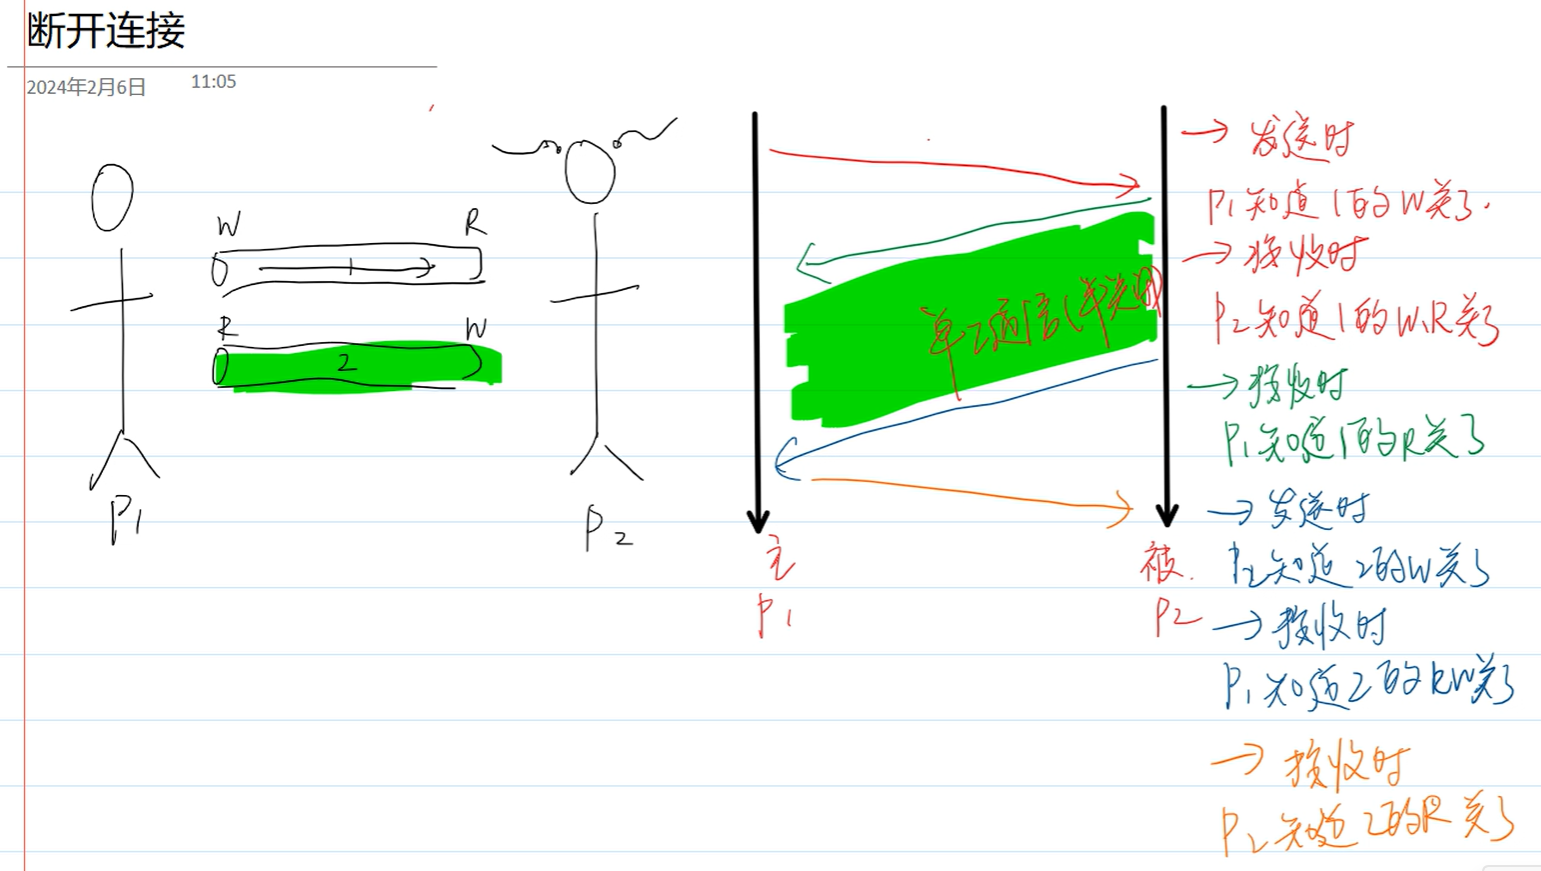 断开连接
2024年2月6日 11:05
W R
1
R W
2
P1
P2
单工通信(半关闭)
主
P1
被.
P2
→ 发送时
P1知道1的W关了.
→ 接收时
P2知道1的W、R关了
→ 接收时
P1知道1的R关了
→ 发送时
P2知道2的W关了
→ 接收时
P1知道2的RW关了
→ 接收时
P2知道2的R关了